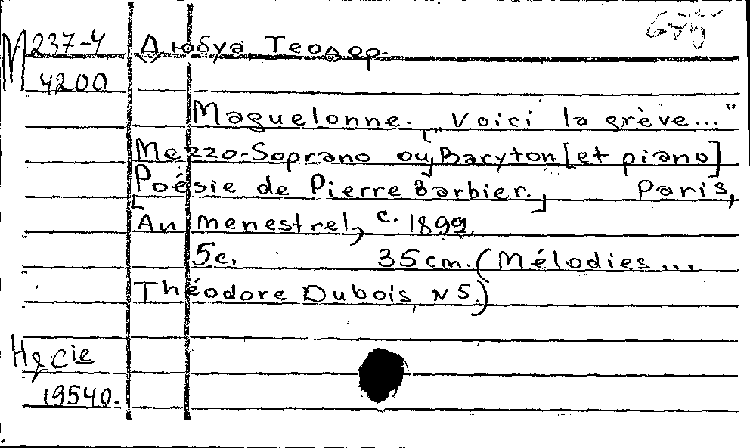 М 237-4 Дюбуа, Теодор.
4200
Maguelonne. „Voici la grève..."
Mezzo-Soprano ou Baryton [et piano]
[Poésie de Pierre Barbier.] Paris,
Au menestrel, c. 1899
5c. 35 cm. (Mélodies...
Théodore Dubois, N 5.)
H & Cie
19540.